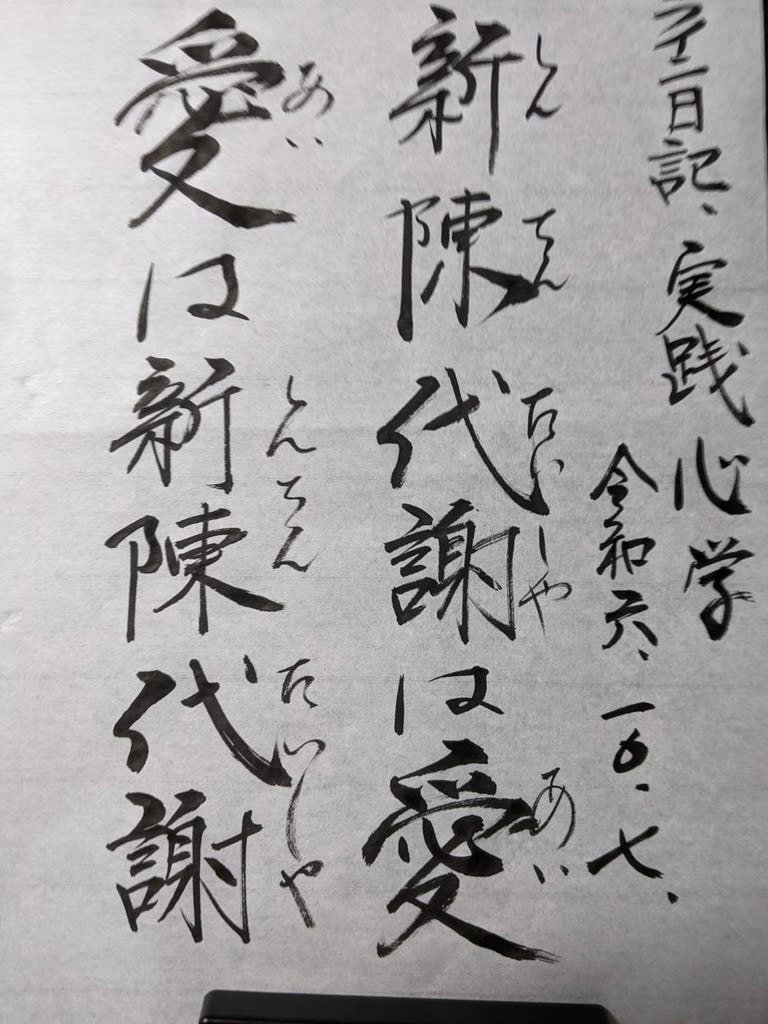 日記、実践心学
令和六、一0、七、
しんちんたいしや あい
新陳代謝は愛
あい しんちんたいしや
愛は新陳代謝